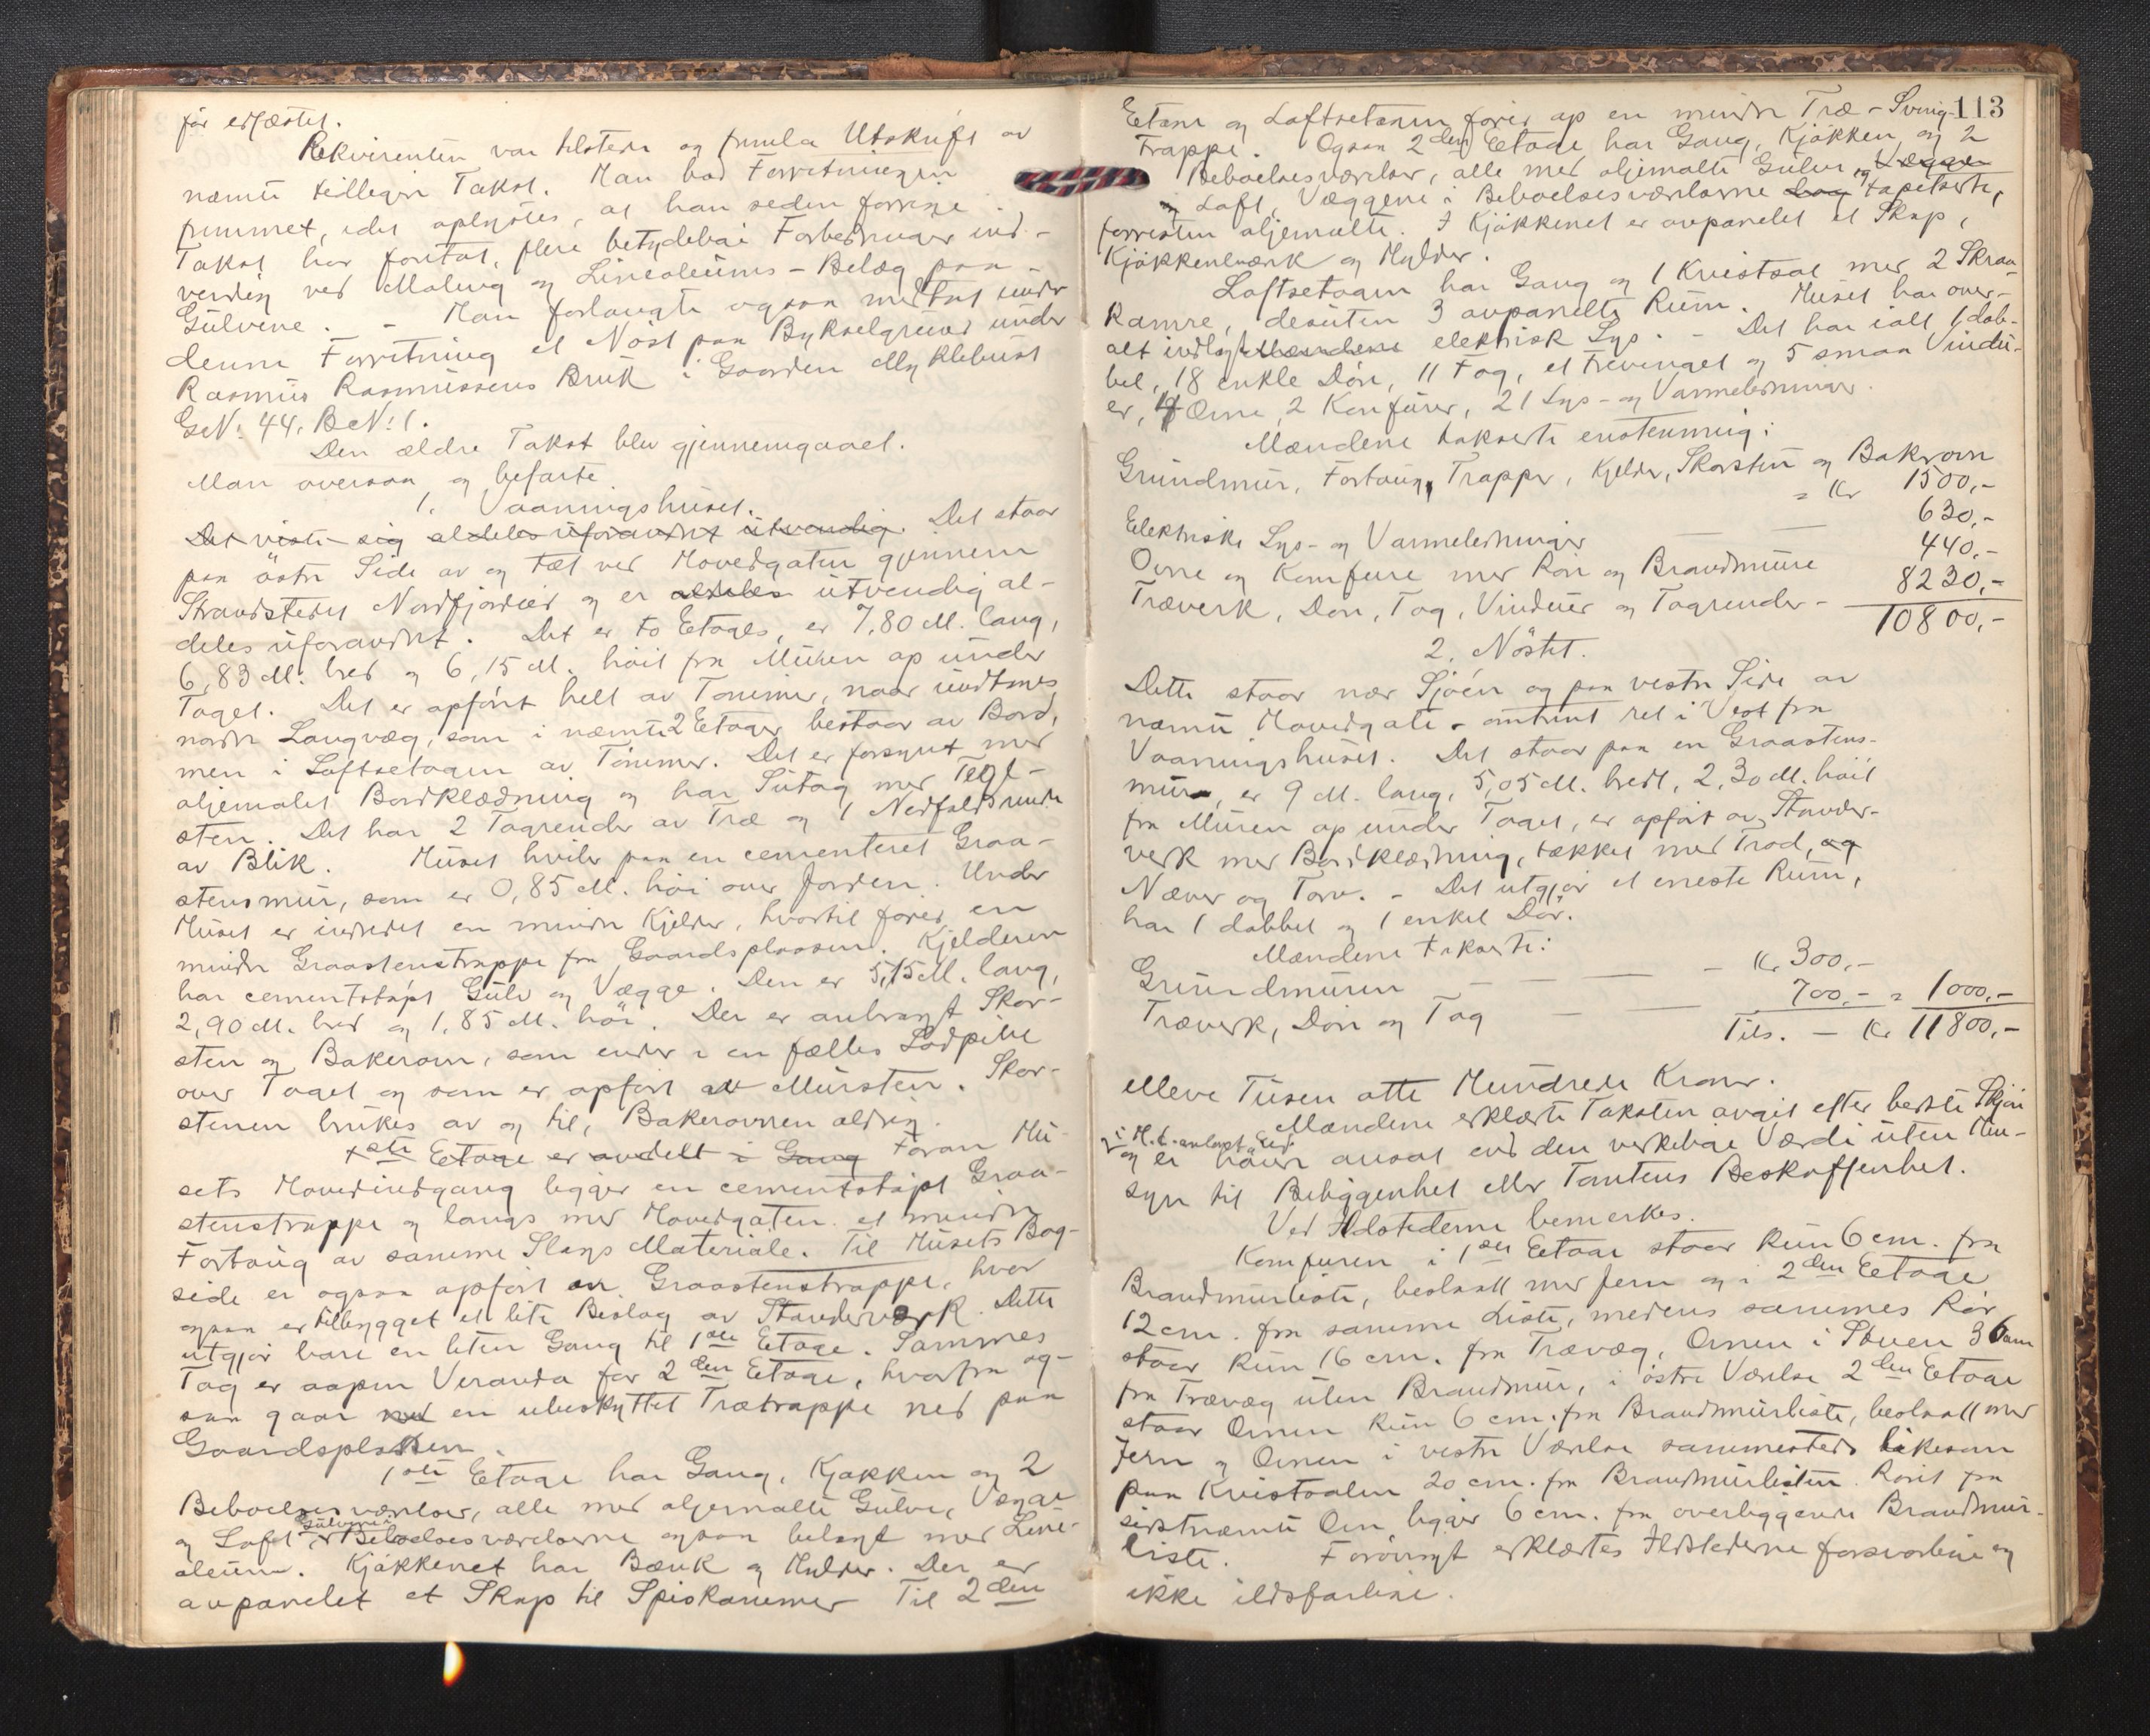 før erfæstet.
Rekvirenten var tilstede og fremla Utskrift av
nævnte tidligere Takst. Man bad Forretningen
fremmet, idet oplystes, at han siden forrige
Takst har foretat flere betydelige Forbedringer ind-
vendig ved Maling og Linoleums-Belæg paa
Gulvene. - Man forlangte ogsaa medtat under
denne Forretning et Nöst paa Bykselgrund under
Rasmus Rasmussens Bruk i Gaarden Myklebust
GNo. 44, BNo. 1.
Den ældre Takst blev gjennemgaaet.
Man oversaa og befarte
1. Vaaningshuset.
Det viste sig aldeles uforandret utvendig. Det staar
paa östre Side av og tæt ved Hovedgaten gjennem
Strandstedet Nordfjordeid og er aldeles utvendig al-
deles uforandret. Det er to Etages, er 7,80 M. lang,
6,83 M. bred og 6,15 M. höit fra Muren op under
Taget. Det er opført helt av Tømmer, naar undtages
nordre Langvæg, som i nævnte 2 Etager bestaar av Bord,
men i Loftsetagen av Tömmer. Det er forsynt med
oljemalet Bordklædning og har Sutag med Tegl-
sten. Det har 2 Tagrender av Træ og 1 Nedfaldsrende
av Blik. Huset hviler paa en cementeret Graa-
stensmur, som er 0,85 M. høi over Jorden. Under
Huset er indredet en mindre Kjelder, hvortil fører en
mindre Graastenstrappe fra Gaardsplassen. Kjelderen
har cementstøpt Gulv og Vægge. Den er 5,15 M. lang,
2,90 M. bred og 1,85 M. høi. Der er anbragt Skor-
sten og Bakerovn, som ender i en fælles Lodpibe
over Taget og som er opført av Mursten. Skor-
stenen brukes av og til, Bakerovnen aldrig.
1ste Etage er avdelt i Gang Foran Hu-
sets Hovedindgang ligger en cementstøpt Graa-
stenstrappe og langs med Hovedgaten et mindre
Fortaug av samme Slags Materiale. Til Husets Bag-
side er ogsaa opført en Graastenstrappe, hvor
ogsaa er tilbygget et lite Beslag av Standerverk. Dette
utgjør bare en liten Gang til 1ste Etage. Sammes
Tag er aapen Veranda for 2den Etage, hvorfra og-
saa gaar ned en ubeskyttet Trætrappe ned paa
Gaardsplassen.
1ste Etage har Gang, Kjøkken og 2
Beboelsesværelser, alle med oljemalte Gulve, Vægge
og Loft, Gulvene i Beboelsesværelserne ogsaa belagt med Lino-
oleum. Kjøkkenet har Bænk og Hylder. Der er
avpanelet et Skap til Spiskammer Til 2den
113
Etage og Loftsetagen fører op en mindre Træ-Sving-
Trappe. Ogsaa 2den Etage har Gang, Kjøkken og 2
Beboelsesværelser, alle med oljemalte Gulver, og Vægge
og Loft, Væggene i Beboelsesværelserne dog tapetserte,
forresten oljemalte. I Kjøkkenet er avpanelet et Skap,
Kjøkkenbænk og Hylder.
Loftsetagen har Gang og 1 Kvistsal med 2 Skraa-
kamre, desuten 3 avpanelte Rum. Huset har over-
alt indlagt elektrisk Lys. - Det har ialt 1 dob-
bel, 18 enkle Døre, 11 Fag, et trevinget og 5 smaa Vindu-
er, 4 Ovne, 2 Komfurer, 21 Lys- og Varmeledninger.
Mændene takserte enstemmig:
Grundmur, Fortaug, Trapper, Kjelder, Skorsten og Bakerovn
= Kr 1500,-
Elektriske Lys- og Varmeledninger — 630,-
Ovne og Komfure med Rør og Brandmure 440,-
Træverk, Døre, Tag, Vinduer og Tagrender - 8230,-
10800,-
2. Nöstet.
Dette staar nær Sjøen og paa vestre Side av
nævnte Hovedgate - omtrent ret i Vest fra
Vaaningshuset. Det staar paa en Graastens-
mur, er 9 M. lang, 5,05 M. bredt, 2,30 M. höit
fra Muren op under Taget, er opført av Stander-
verk med Bordklædning, tækket med Trod, og
Næver og Torv. - Det utgjør et eneste Rum,
har 1 dobbel og 1 enkel Dør.
Mændene takserte:
Grundmuren — — — - Kr 300,-
Træverk, Døre og Tag — — 700,- = 1000,-
Tils. — Kr 11800,-
elleve Tusen otte Hundrede Kroner.
Mændene erklærte Taksten avgit efter bedste Skjøn
og er høiere ansat end den virkelige Værdi uten Hen-
syn til Beliggenhet eller Tomtens Beskaffenhet.
Ved Ildstederne bemerkes.
Komfuren i 1ste Etage staar kun 6 cm. fra
Brandmurliste, beslaatt med Jern og i 2den Etage
12 cm. fra samme Liste, medens sammes Rør
staar kun 16 cm. fra Trævæg, Ovnen i Stuen 36 cm
fra Trævæg uten Brandmur, i östre Værelse 2den Etage
staar Ovnen kun 6 cm. fra Brandmurliste, beslaatt med
Jern og Ovnen i vestre Værelse sammesteds likesom
paa Kvistsalen 20 cm. fra Brandmurlisten. Røret fra
sidstnævnte Ovn ligger 6 cm. fra overliggende Brandmur-
liste. Forøvrigt erklærtes Ildstederne forsvarlige og
ikke ildsfarlige.